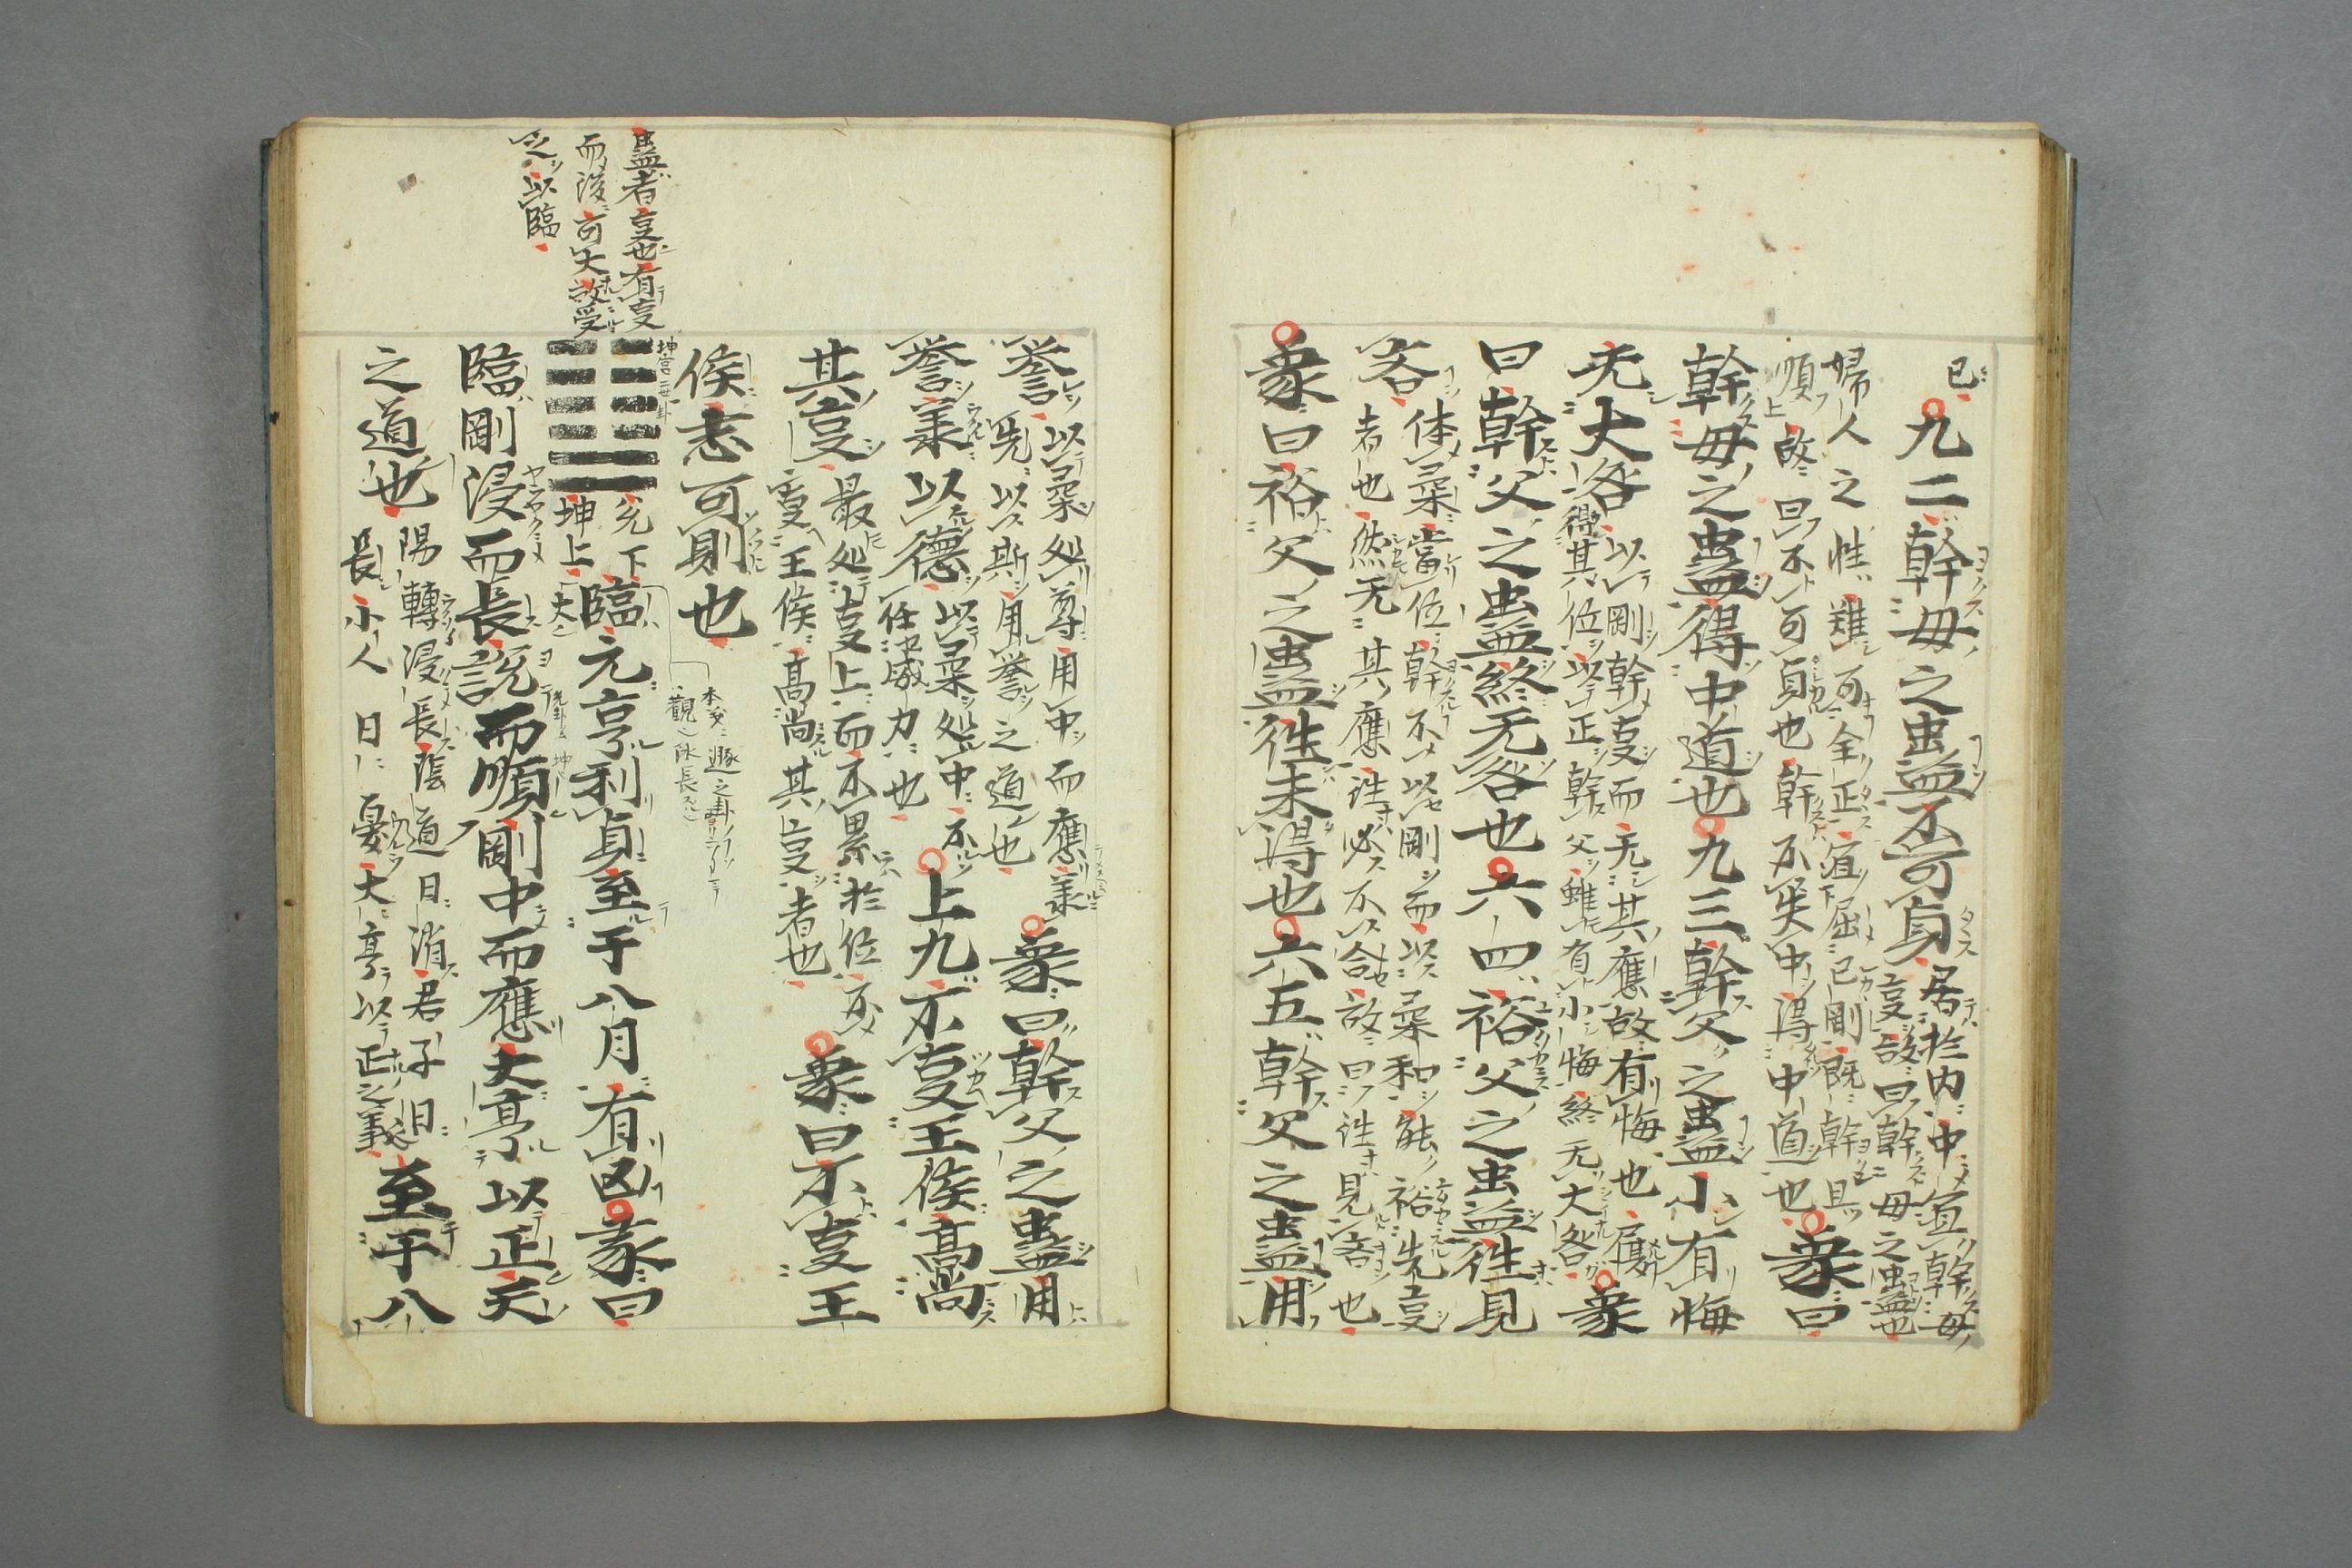 已九二幹母之蠱不可貞居於内中宜幹母
事故曰幹母之蠱也
婦人之性難可全正宜屈已剛既幹且
順故曰不可貞也幹不失中得中道也象曰
幹母之蠱得中道也九三幹父之蠱小有悔
无大咎以剛幹事而无其應故有悔也履
得其位以正幹父雖有小悔終无大咎象
曰幹父之蠱終无咎也六四裕父之蠱往見
吝体柔當位幹不以剛而以柔和能裕先事
者也然无其應往必不合故曰往見吝也
象曰裕父之蠱往未得也六五幹父之蠱用
譽以柔処尊用中而應義
先以斯用譽之道也象曰幹父之蠱用
譽義以德以柔処中不
任威力也上九不事王侯高尚
其事最処事上而不累於位不
事王侯高尚其事者也象曰不事王
侯志可則也
蠱者事也有事
而後可大故受
之以臨
坤宮二世卦
兌下
坤上
大也
臨元亨利貞至于八月有凶彖曰
本文
遯之卦
觀
臨剛浸而長說而順剛中而應大亨以正天
之道也陽轉浸長陰道日消君子日
長小人日憂大亨以正之義至于八